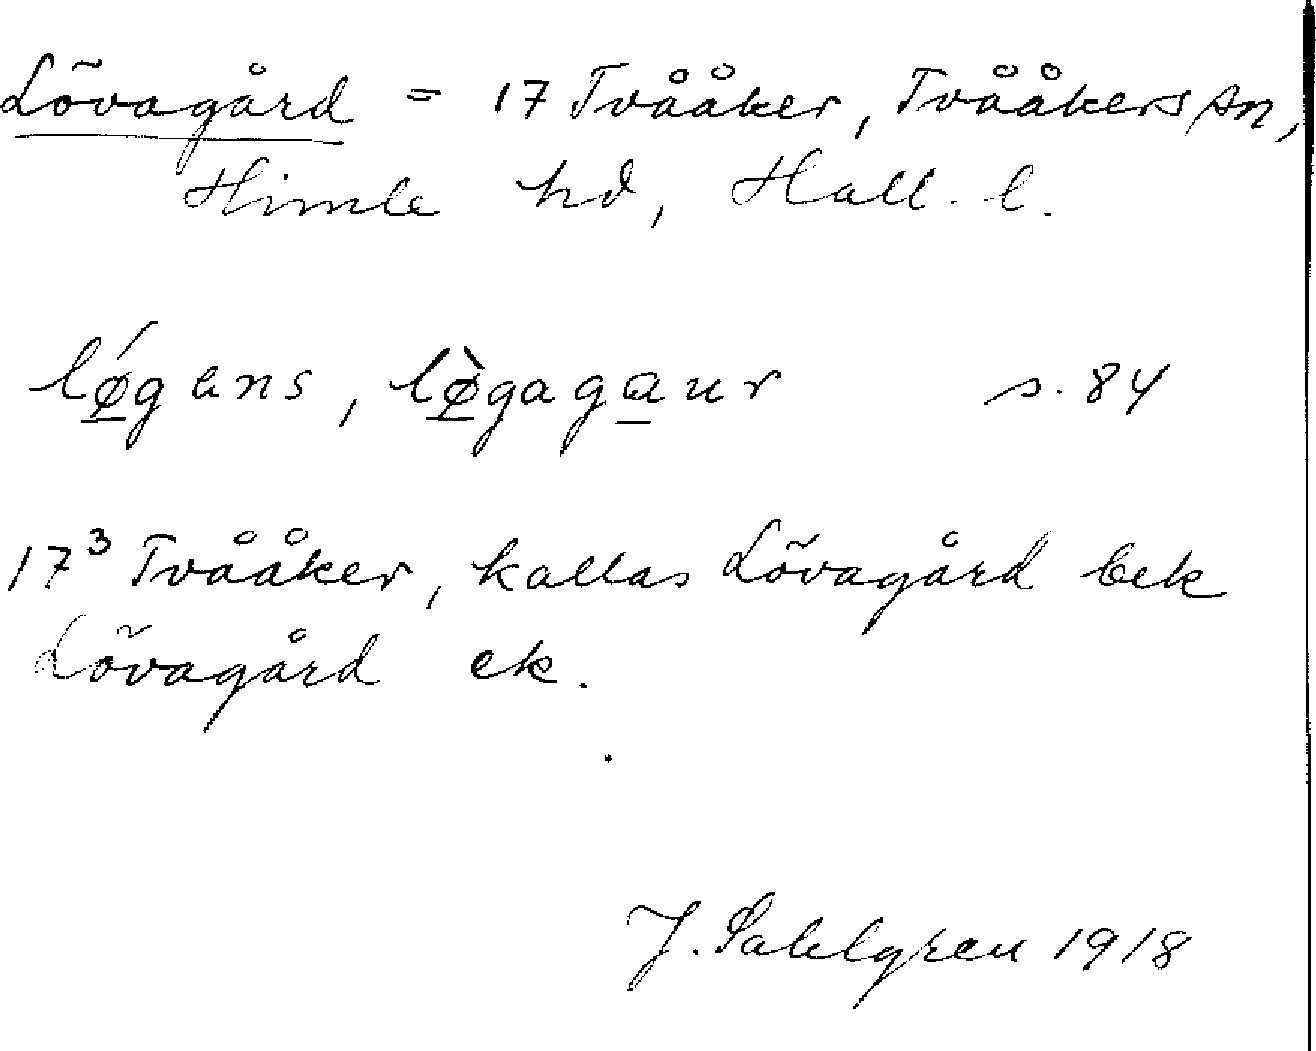 Lövagård = 17 Tvååker, Tvååkers sn,
Himle hd, Hall. l.
lǿ̲gans, lø̲̀gaga̲ur s. 84
17³ Tvååker, kallas Lövagård bek
Lövagård ek.
J. Sahlgren 1918